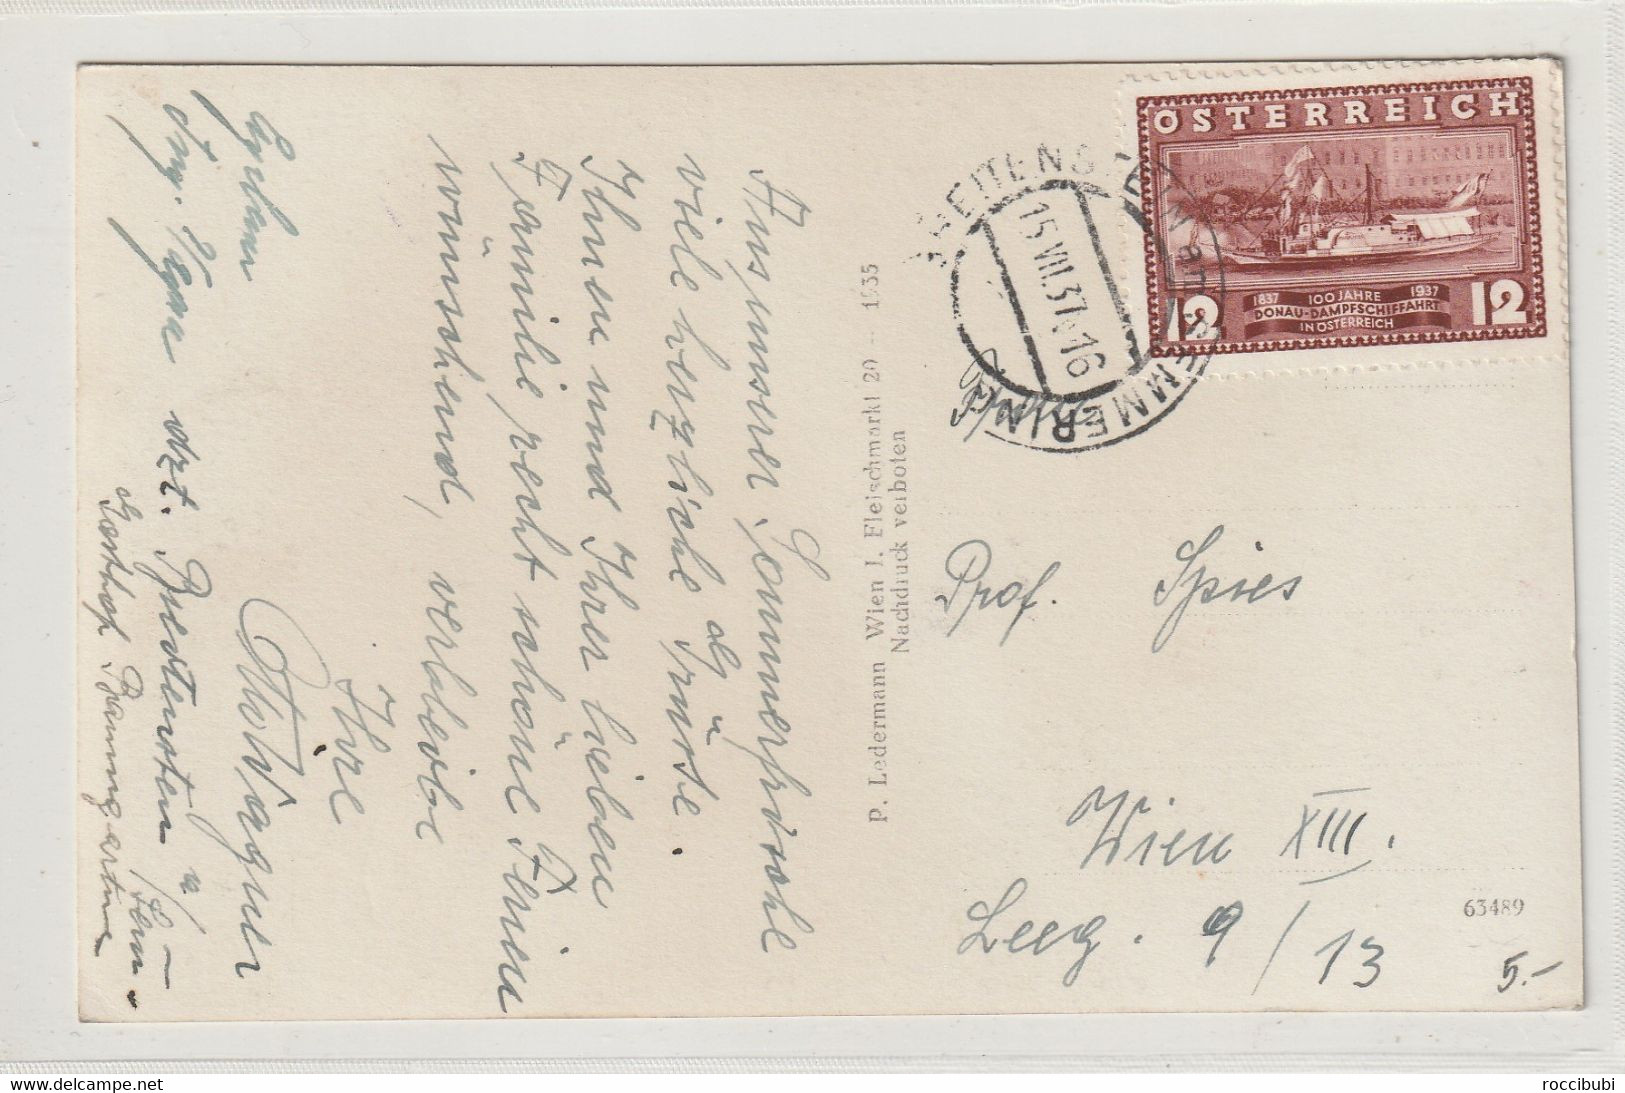 Aus unserer Sommerfrische
viele herzliche Grüsse.
Ihnen und Ihrer lieben
Familie recht schöne Ferien
wünschend, verbleibe
Ihre
Wagner
Ing. Wagner dzt. Breitenstein a/S. –
Gasthof Baumgartner
P. Ledermann Wien I. Fleischmarkt 20 – 1935
Nachdruck verboten
ÖSTERREICH
12 1837 100 JAHRE 1937 12
DONAU-DAMPFSCHIFFAHRT
IN ÖSTERREICH
BREITENSTEIN am SEMMERING
15.VII.37 16
Prof. Spies
Wien XIII.
9/13
63489
5.–
delcampe.net
roccibubi